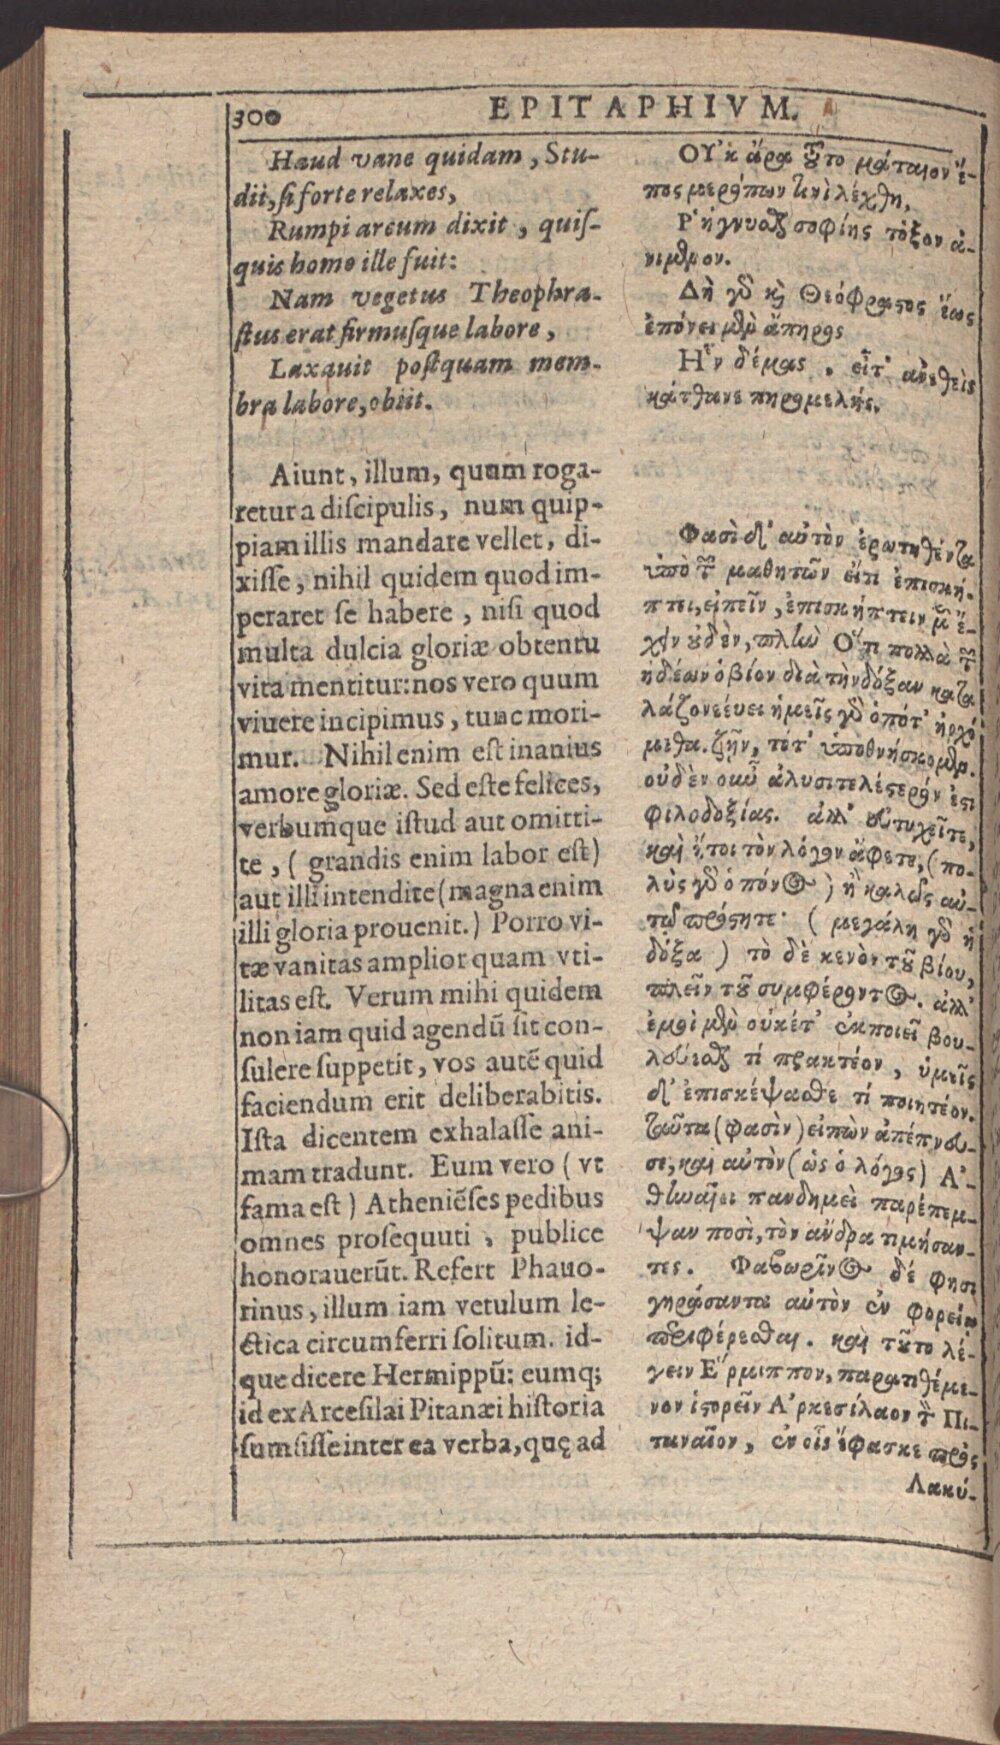 300 EPITAPHIVM.
Haud vane quidam, Stu-
dii, si forte relaxes,
Rumpi arcum dixit, quis-
quis homo ille fuit:
Nam vegetus Theophra-
stus erat firmusque labore,
Laxauit postquam mem-
bra labore, obiit.
Aiunt, illum, quum roga-
retur a discipulis, num quip-
piam illis mandare vellet, di-
xisse, nihil quidem quod im-
peraret se habere, nisi quod
multa dulcia gloriæ obtentu
vita mentitur: nos vero quum
viuere incipimus, tunc mori-
mur. Nihil enim est inanius
amore gloriæ. Sed este felices,
verbumque istud aut omitti-
te, (grandis enim labor est)
aut illi intendite (magna enim
illi gloria prouenit.) Porro vi-
tæ vanitas amplior quam vti-
litas est. Verum mihi quidem
non iam quid agendū sit con-
sulere suppetit, vos autē quid
faciendum erit deliberabitis.
Ista dicentem exhalasse ani-
mam tradunt. Eum vero (vt
fama est) Atheniēses pedibus
omnes prosequuti, publice
honorauerūt. Refert Phauo-
rinus, illum iam vetulum le-
ctica circumferri solitum. id-
que dicere Hermippū: eumq;
id ex Arcesilai Pitanæi historia
sumsisse inter ea verba, quę ad
ΟΥ᾽κ ἄρα τοῦτο μάταιον ἔ-
πος μερόπων τινὶ λέχθη,
Ρ῾ήγνυσθαι σοφίης τόξον ἀ-
νιέμενον.
Δὴ γὰρ καὶ Θεόφραστος ἕως
ἐπόνει μὲν ἄπηρος
Η῏ν δέμας, εἶτ᾽ ἀνεθεὶς
κάτθανε πηρομελής.
Φασὶ δ᾽ αὐτὸν ἐρωτηθέντα
ὑπὸ τῶν μαθητῶν εἴ τι ἐπισκή-
πτει, εἰπεῖν, ἐπισκήπτειν μὲν ἔ-
χειν οὐδὲν, πλὴν Ο῞τι πολλὰ τῶν
ἡδέων ὁ βίον διὰ τὴν δόξαν κατα
λάζονεύει ἡμεῖς γὰρ ὁπότ᾽ ἀρχό
μεθα. ζῆν, τότ᾽ ἀποθνήσκομεν.
οὐδὲν οὖν ἀλυσιτελέστερόν ἐστι
φιλοδοξίας. ἀλλ᾽ εὐτυχεῖτε,
καὶ ἤτοι τὸν λόγον ἄφετε, (πο-
λὺς γὰρ ὁ πόνος) ἢ καλῶς αὐ-
τῷ πρόστητε· (μεγάλη γὰρ ἡ
δόξα) τὸ δὲ κενὸν τοῦ βίου,
πλεῖν τοῦ συμφέροντος. ἀλλ᾽
ἐμοὶ μὲν οὐκέτ᾽ ἐκποιεῖ βου-
λεύεσθαι τί πρακτέον, ὑμεῖς
δ᾽ ἐπισκέψασθε τί ποιητέον.
ταῦτα (φασὶν) εἰπὼν ἀπέπνευ-
σε, καὶ αὐτὸν (ὡς ὁ λόγος) Α᾽-
θηναῖοι πανδημεὶ παρέπεμ-
ψαν ποσὶ, τὸν ἄνδρα τιμήσαν-
τες. Φαβωρῖνος δέ φησι
γηράσαντα αὐτὸν ἐν φορείῳ
περιφέρεσθαι. καὶ τοῦτο λέ-
γειν Ε῞ρμιππον, παρατιθέμε-
νον ἱστορεῖν Α᾽ρκεσίλαον τὸν Πι-
ταναῖον, ἐν οἷς ἔφασκε πρὸς
Λακύ-